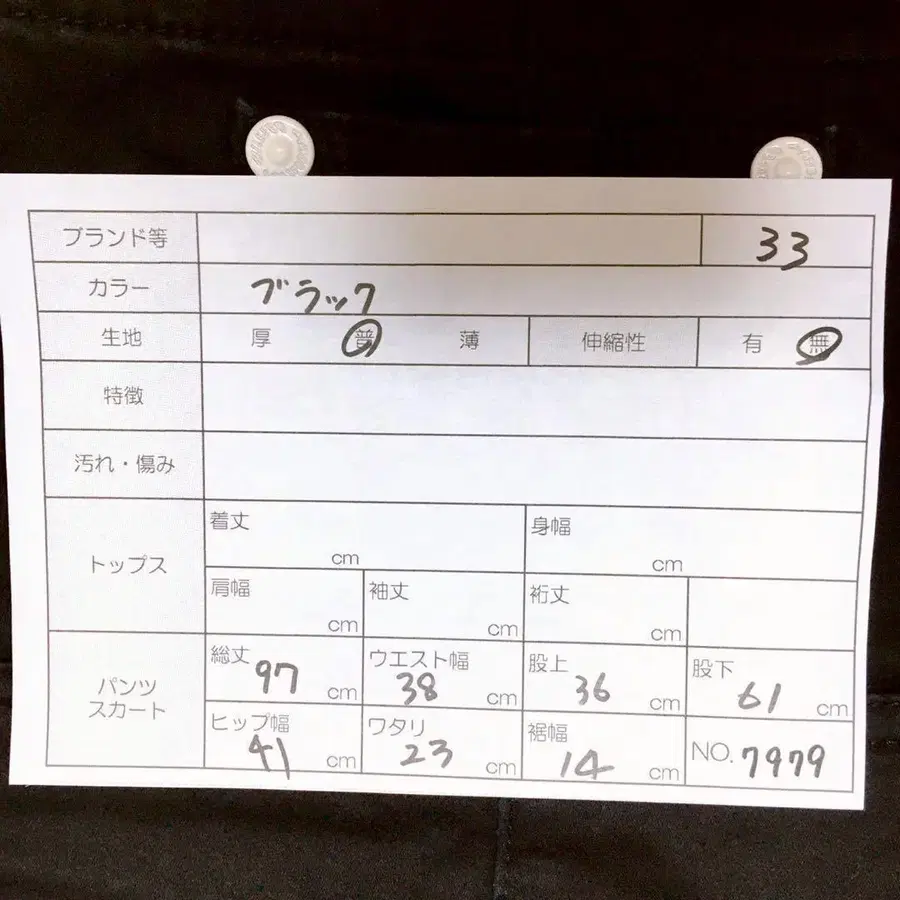 ブランド等 33
カラー ブラック
生地 厚 普 薄 伸縮性 有 無
特徴
汚れ・傷み
トップス
着丈 cm 身幅 cm
肩幅 cm 袖丈 cm 裄丈 cm
パンツ
スカート
総丈 97 cm ウエスト幅 38 cm 股上 36 cm 股下 61 cm
ヒップ幅 41 cm ワタリ 23 cm 裾幅 14 cm NO. 7979